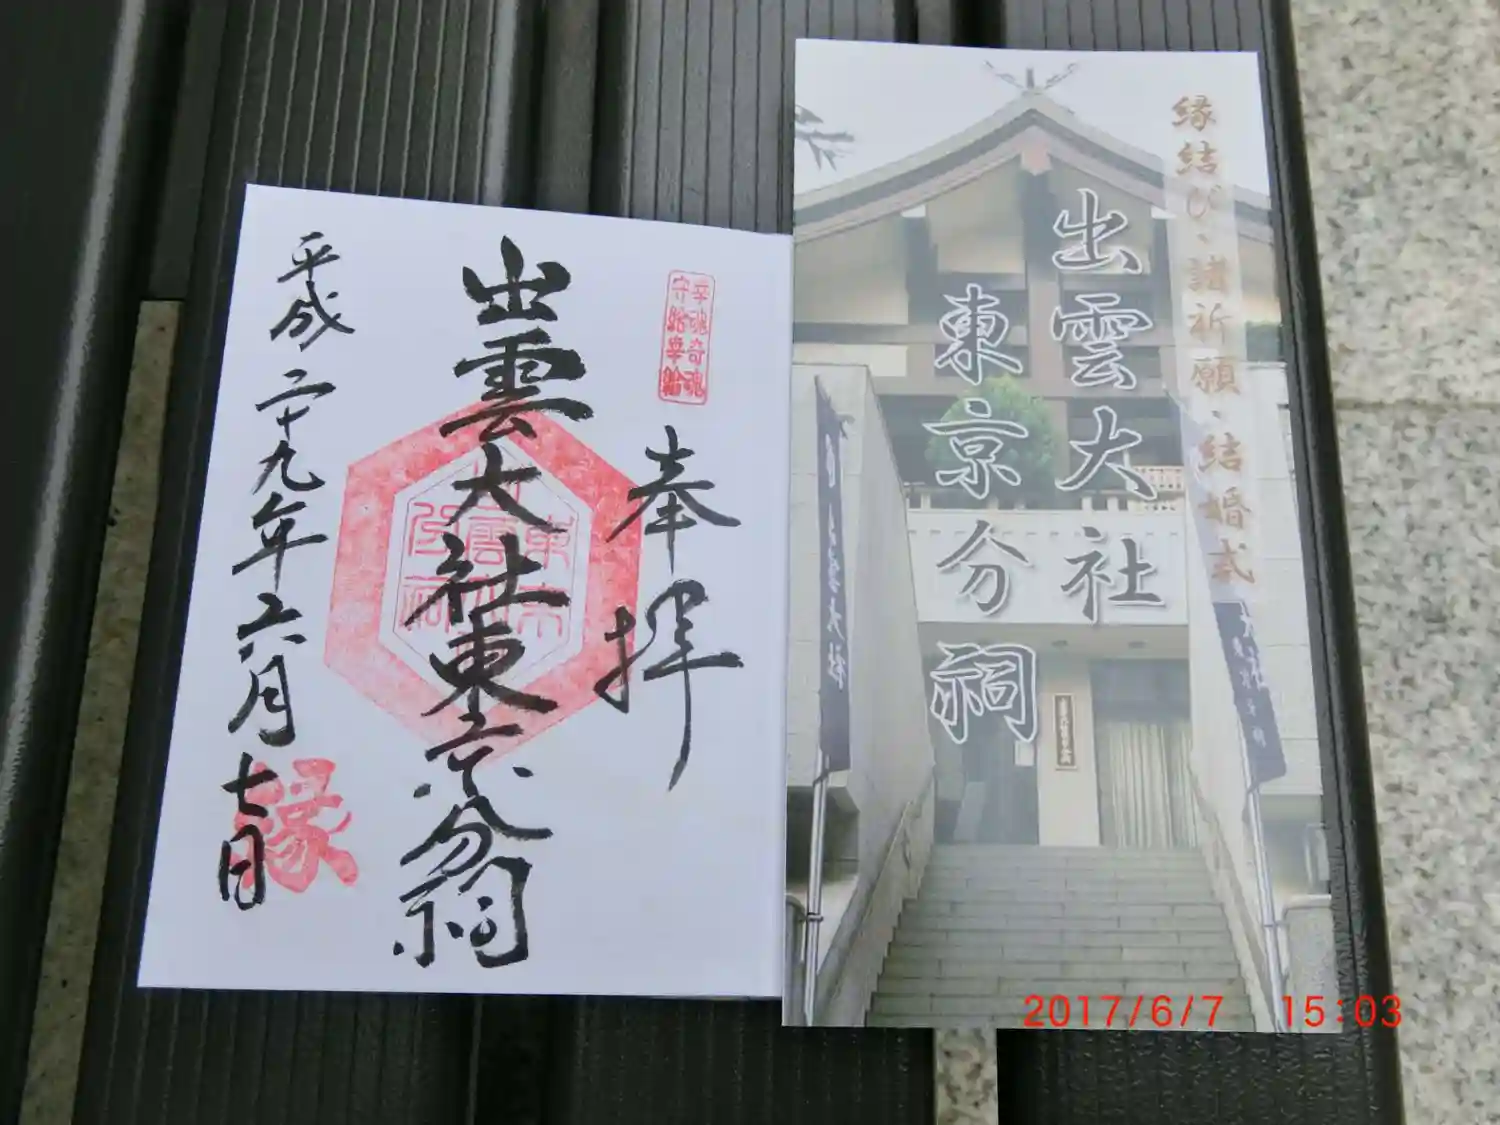 奉拝
出雲大社東京分祠
平成二十九年六月七日
幸魂奇魂
守給幸給
縁
縁結び・諸祈願・結婚式
出雲大社
東京分祠
2017/6/7 15:03